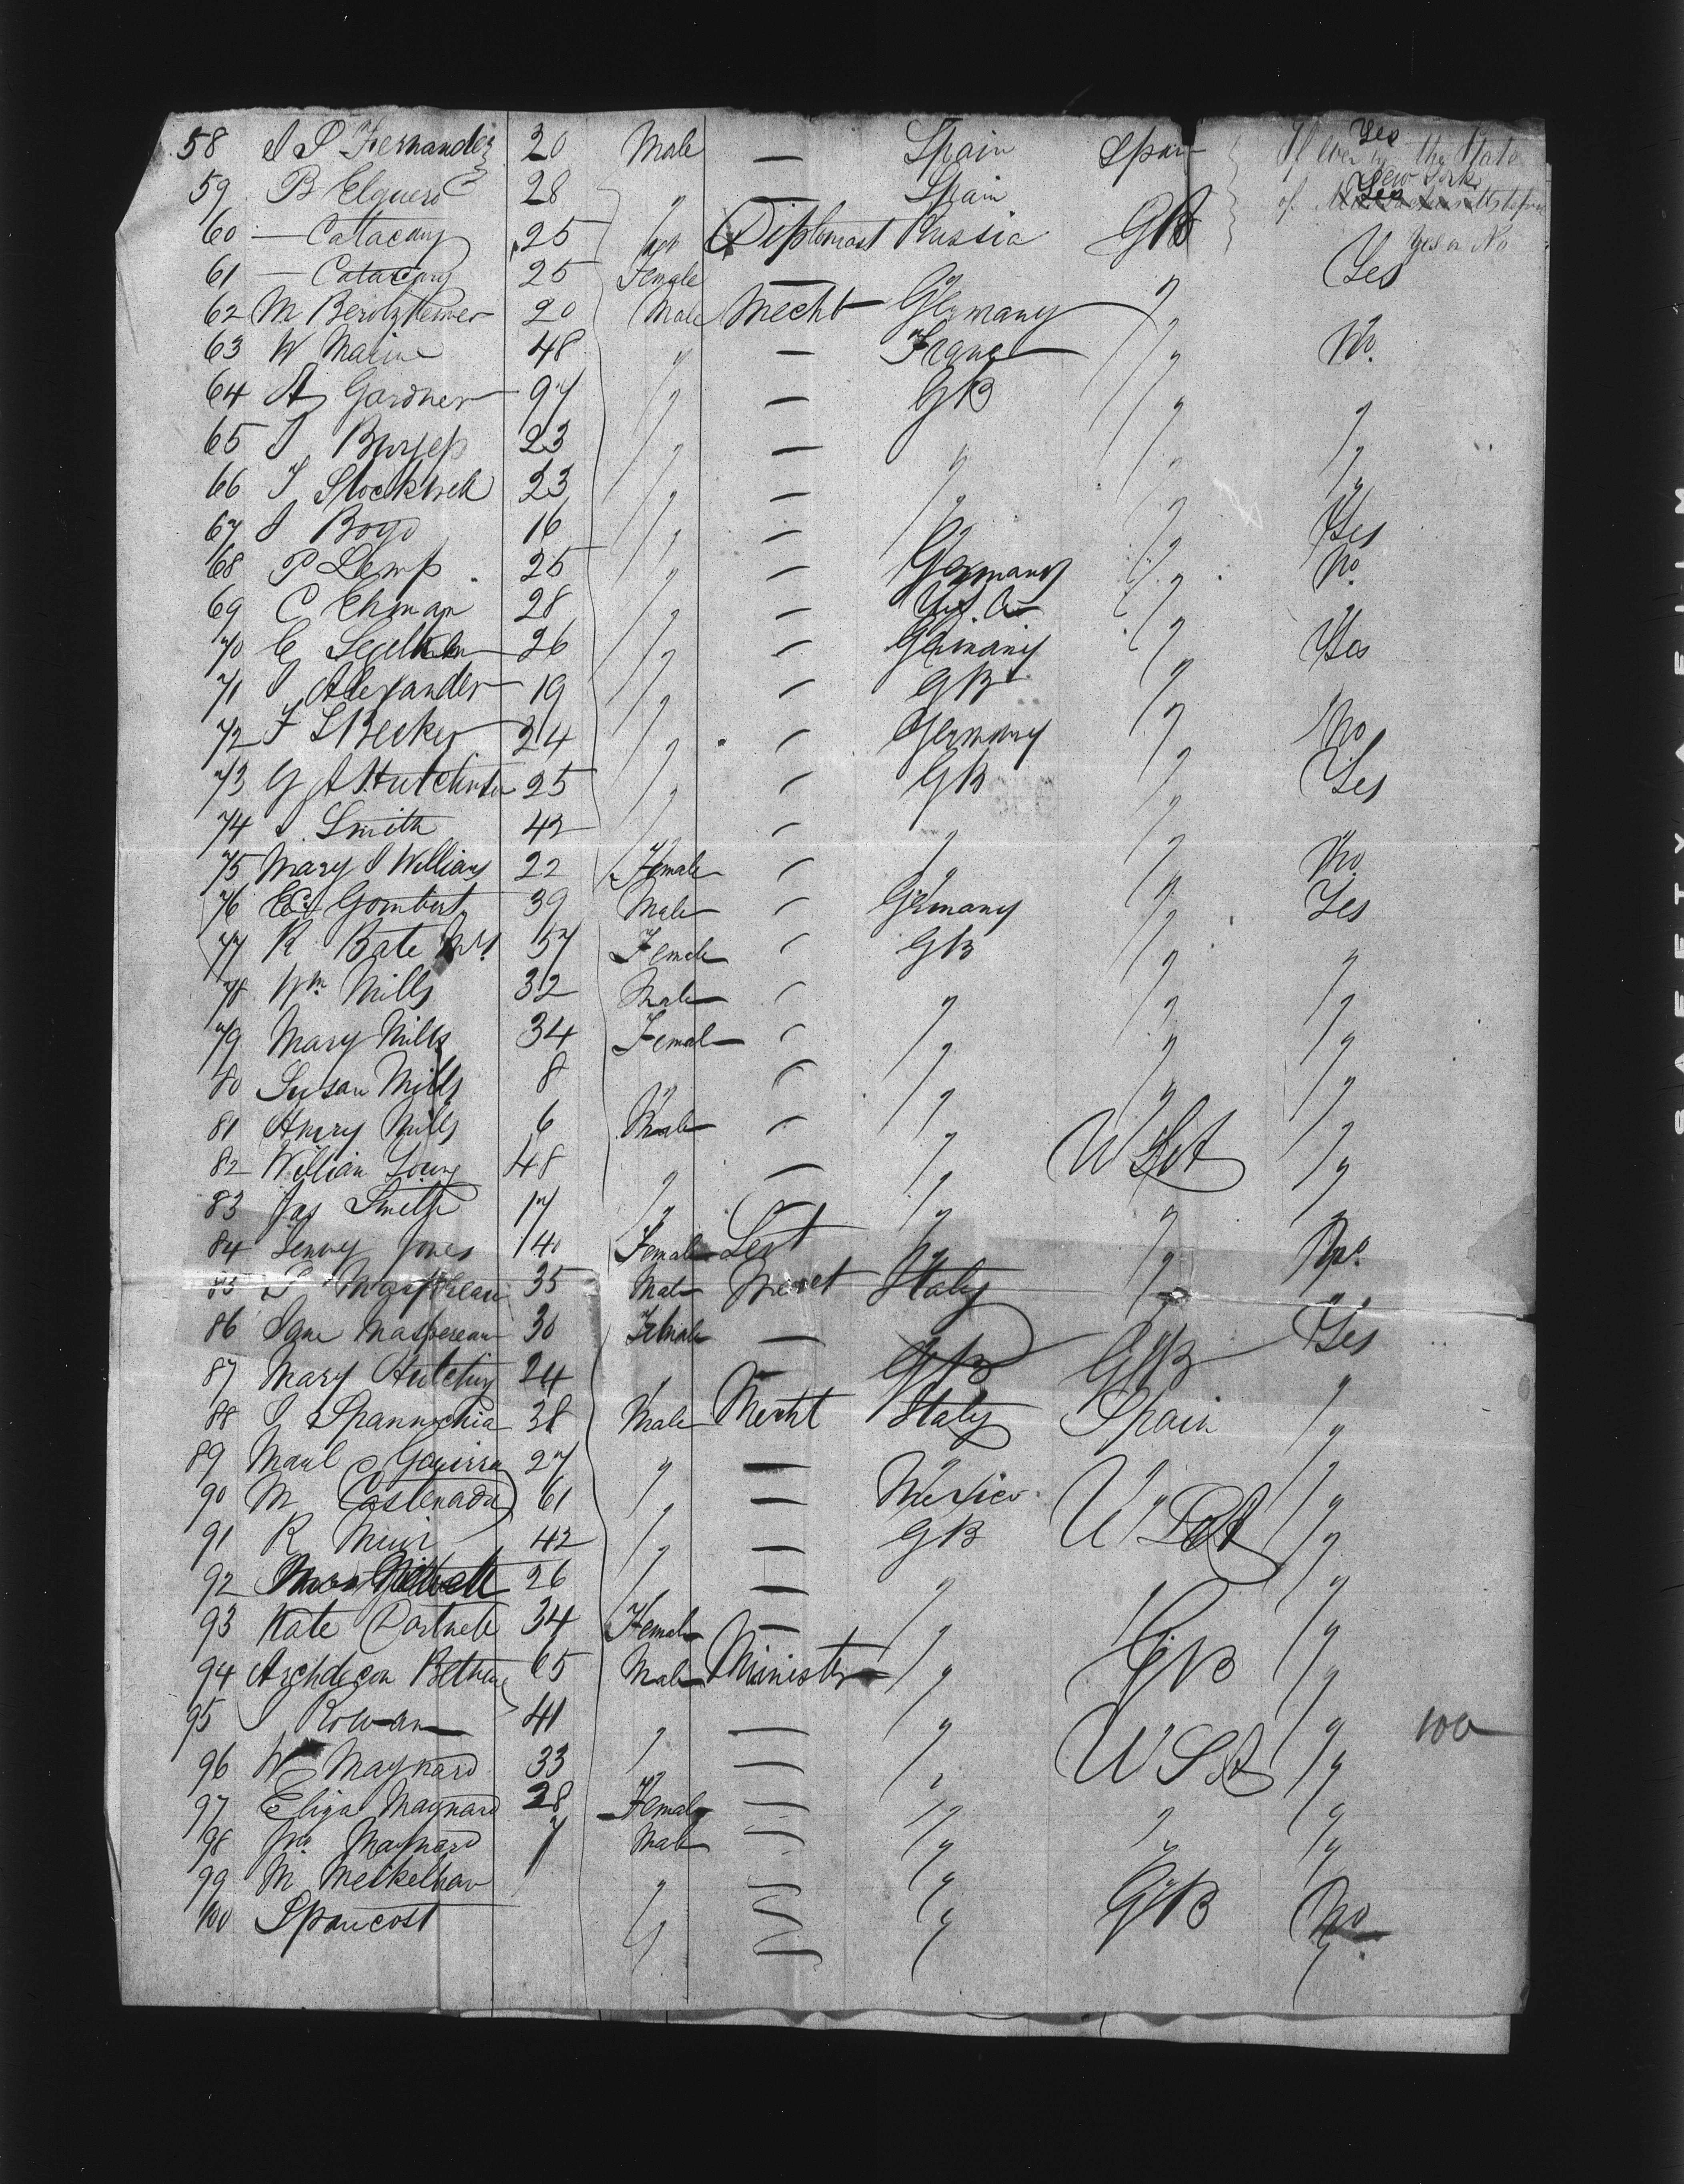 58 J P Fernandez 20 Male — Spain Spain Yes If ever in the State
59 B Elguero 28 " — Spain New York Yes of Massachusetts before
60 — Catacazy 25 " Diplomast Russia GB Yes or No
61 — Catacazy 25 Female — " " Yes
62 M Berolzheimer 20 Male Mecht Germany " "
63 W Marine 48 " — France " No
64 A Gardner 97 " — GB " "
65 J Burgess 23 " — " " "
66 T Stockwell 23 " — " " "
67 J Bogo 16 " — " " Yes
68 P Lemp 25 " — Germany " No
69 C Ehman 28 " — "
70 C 26 " — Germany " Yes
71 J Alexander 19 " — GB " "
72 F L Becker 24 " — Germany " No
73 G A Hutchinson 25 " — GB " Yes
74 J Smith 42 " — " " "
75 Mary J Williams 22 Female — " " No
76 E Gombert 39 Male — Germany " Yes
77 R Bate Mrs 57 Female — GB " "
78 Wm Mills 32 Male — " " "
79 Mary Mills 34 Female — " " "
80 Susan Mills 8 " — " " "
81 Henry Mills 6 Male — " " "
82 William Young 48 " — " U St "
83 Jas Smith 17 " — " " "
84 Jenny Jones 40 Female " " No
85 35 Male Mercht Italy " "
86 Jane Maspereau 30 Female — " " Yes
87 Mary Hutchins 24 " — GB GB "
88 G Spannochia 38 Male Mercht Italy Spain "
89 Manl 27 " — " " "
90 M Castenada 61 " — Mexico " "
91 R Muir 42 " — GB U St "
92 26 " — " " "
93 Kate Dartnell 34 Female — " " "
94 Archdecon Bethune 65 Male Minister " GB "
95 J Rowan 41 " — " " "
96 W Maynard 33 " — " U St "
97 Eliza Maynard 28 Female — " " "
98 Jno Maynard 7 Male — " " "
99 M Meikelham " — " " "
100 " — " GB No
100